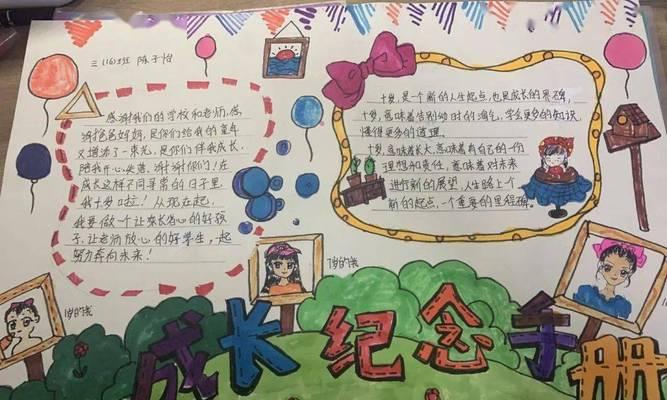 三(16)班 陈子怡
感谢我们的学校和老师,感
谢爸爸妈妈,是你们给我的童年
又增添了一束光,是你们伴我成长,
陪我开心失落,谢谢你们!在
成长这样不同寻常的日子里,
我十岁啦!从现在起,
我要做一个让家长省心的好孩
子,让老师放心的好学生,一起
努力奔向未来!
十岁,是一个新的人生起点,也是成长的里程碑,
十岁,意味着告别幼时的淘气,学会更多的知识,
懂得更多的道理。
十岁,意味着长大,意味着有自己的一份
理想和责任,意味着对未来
进行新的展望,人生踏上一个
新的起点,一个重要的里程碑。
1岁的我
7岁的我
成长纪念手册